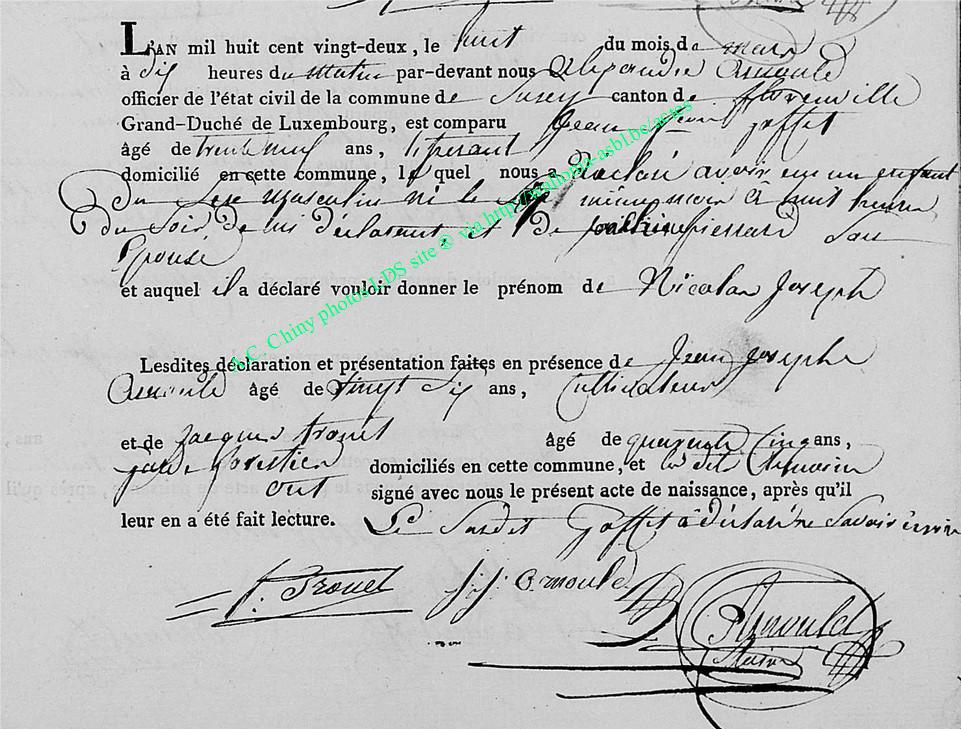 L'AN mil huit cent vingt-deux, le huit du mois de mars
à dix heures du matin par-devant nous Alexandre Arnould
officier de l'état civil de la commune de Suxy canton de florenville
Grand-Duché de Luxembourg, est comparu Jean goffet
âgé de trente neuf ans, tisserant
domicilié en cette commune, le quel nous a déclaré avoir eu un enfant
du Sexe masculin né le même mois à huit heures
du Soir, de lui déclarant, et de pierrard Son
Epouse
et auquel il a déclaré vouloir donner le prénom de Nicolas Joseph
Lesdites déclaration et présentation faites en présence de Jean Josephe
Arnould âgé de vingt Six ans, Cultivateur
et de Jacques trozet âgé de quarente Cinq ans,
garde forestier domiciliés en cette commune, et les dit
ont signé avec nous le présent acte de naissance, après qu'il
leur en a été fait lecture. Le Susdit goffet a déclaré ne Savoir
J. j. Arnould
Arnould
Maire
A.C. Chiny photos LDS site ® via http://www.luxroots-asbl.be/actes